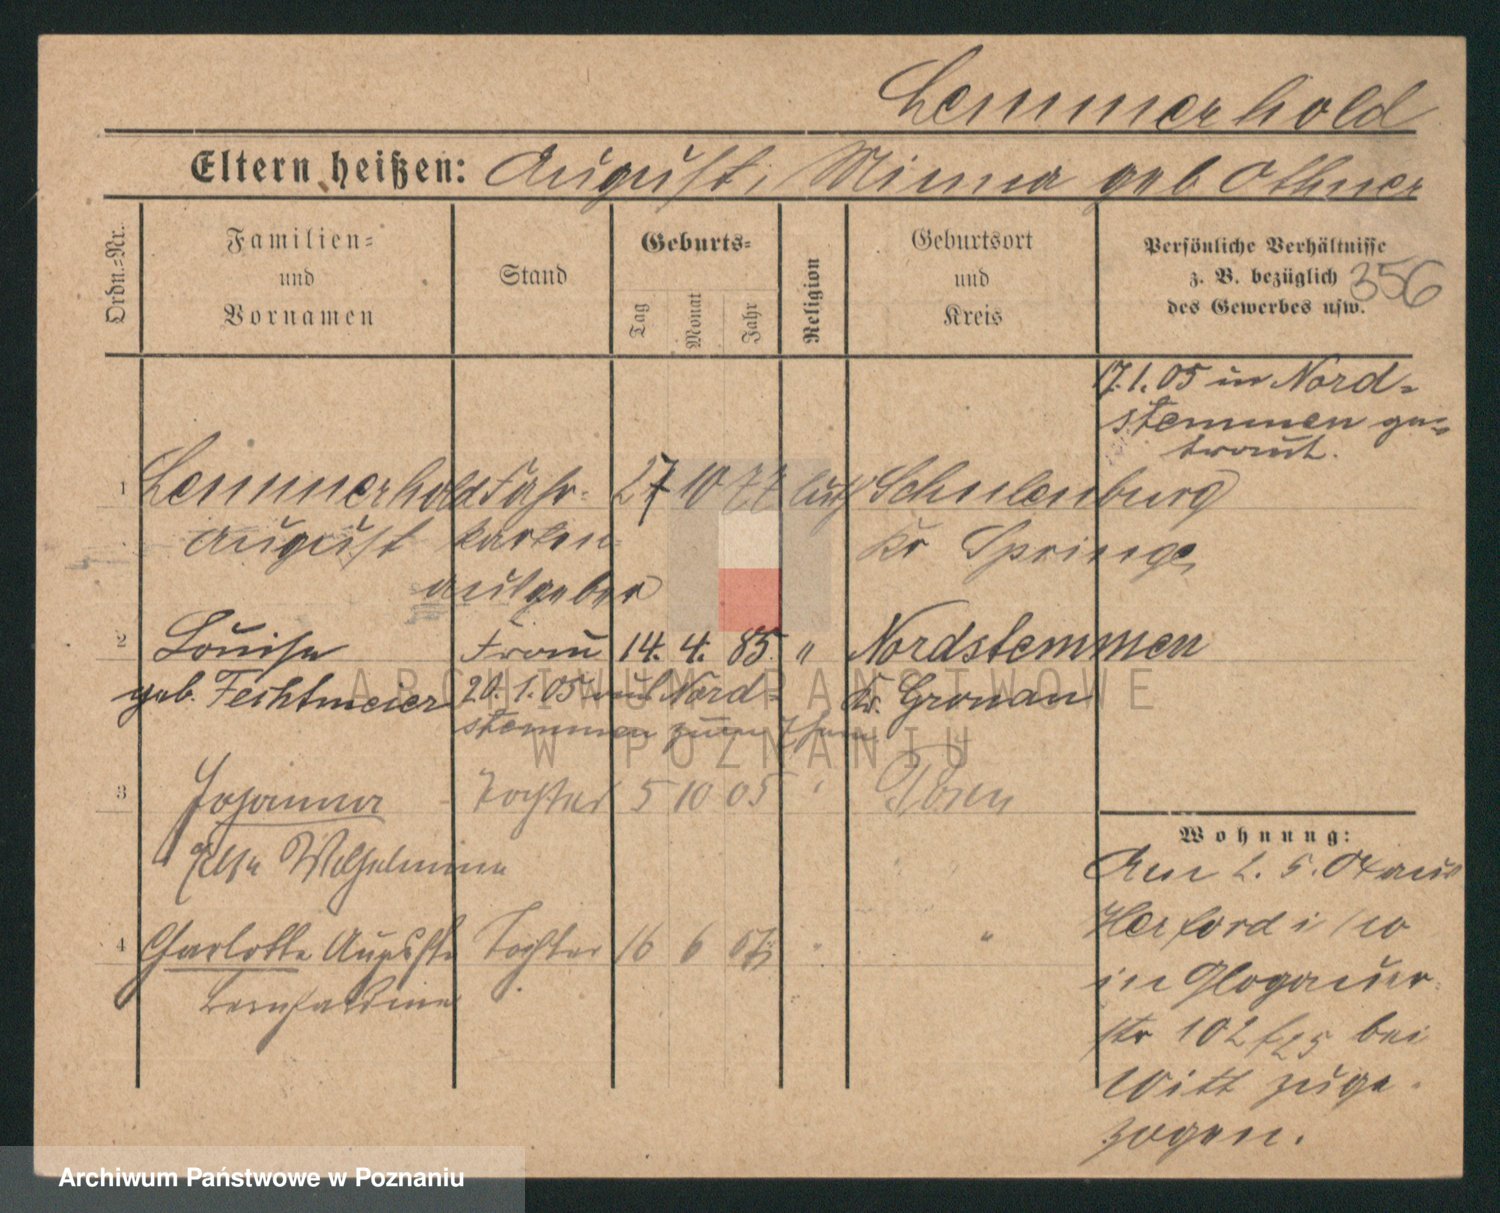 Lemmerhold
Eltern heißen: August, Minna geb Othmer
Ordn.-Nr.
Familien-
und
Vornamen
Stand
Geburts-
Tag
Monat
Jahr
Religion
Geburtsort
und
Kreis
Persönliche Verhältnisse
z. B. bezüglich
des Gewerbes usw.
356
17.1.05 in Nord-
stemmen ge-
traut.
1 Lemmerhold Fahr- 27 10 77 luth Schulenburg
August karten- Kr Springe
ausgeber
2 Louise Frau 14. 4. 85. " Nordstemmen
geb. Fechtmeier 20.1.05 aus Nord- Kr. Gronau
stemmen zum
3 Johanna Tochter 5 10 05 " Posen
Else Wilhelmine
4 Charlotte Auguste Tochter 16 6 07 " "
Wohnung:
Am 2. 5. 04 aus
Herford i
in Glogauer
str 102 bei
Witt zuge
zogen.
ARCHIWUM PAŃSTWOWE
W POZNANIU
Archiwum Państwowe w Poznaniu